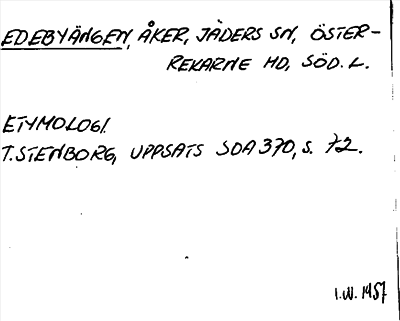 EDEBYÄNGEN, ÅKER, JÄDERS SN, ÖSTER-
REKARNE HD, SÖD. L.
ETYMOLOGI.
T. STENBORG, UPPSATS SOA 370, S. 72.
I.W. 1957